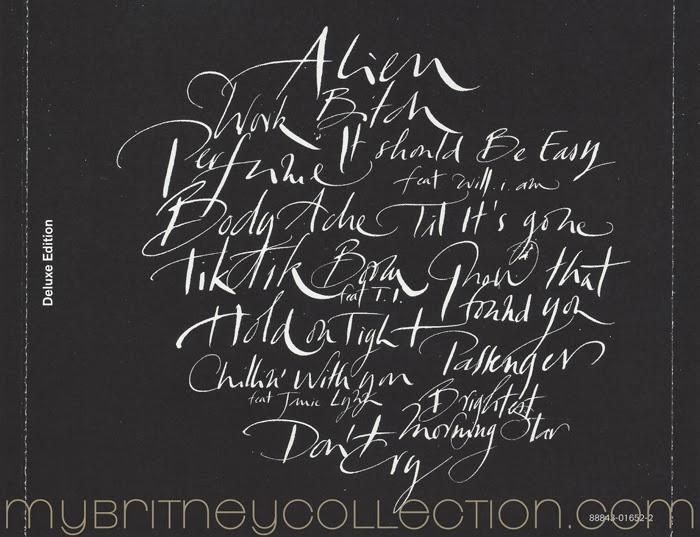 Alien
Work Bitch
Perfume It should Be Easy
feat will.i.am
Body Ache Til It's gone
Tik Tik Boom Now that
feat T.I. found you
Hold on Tight
Passenger
Chillin' with you
feat Jamie Lynn
Brightest
Morning Star
Don't
Cry
Deluxe Edition
88843-01652-2
myBRiTNeycollection.com